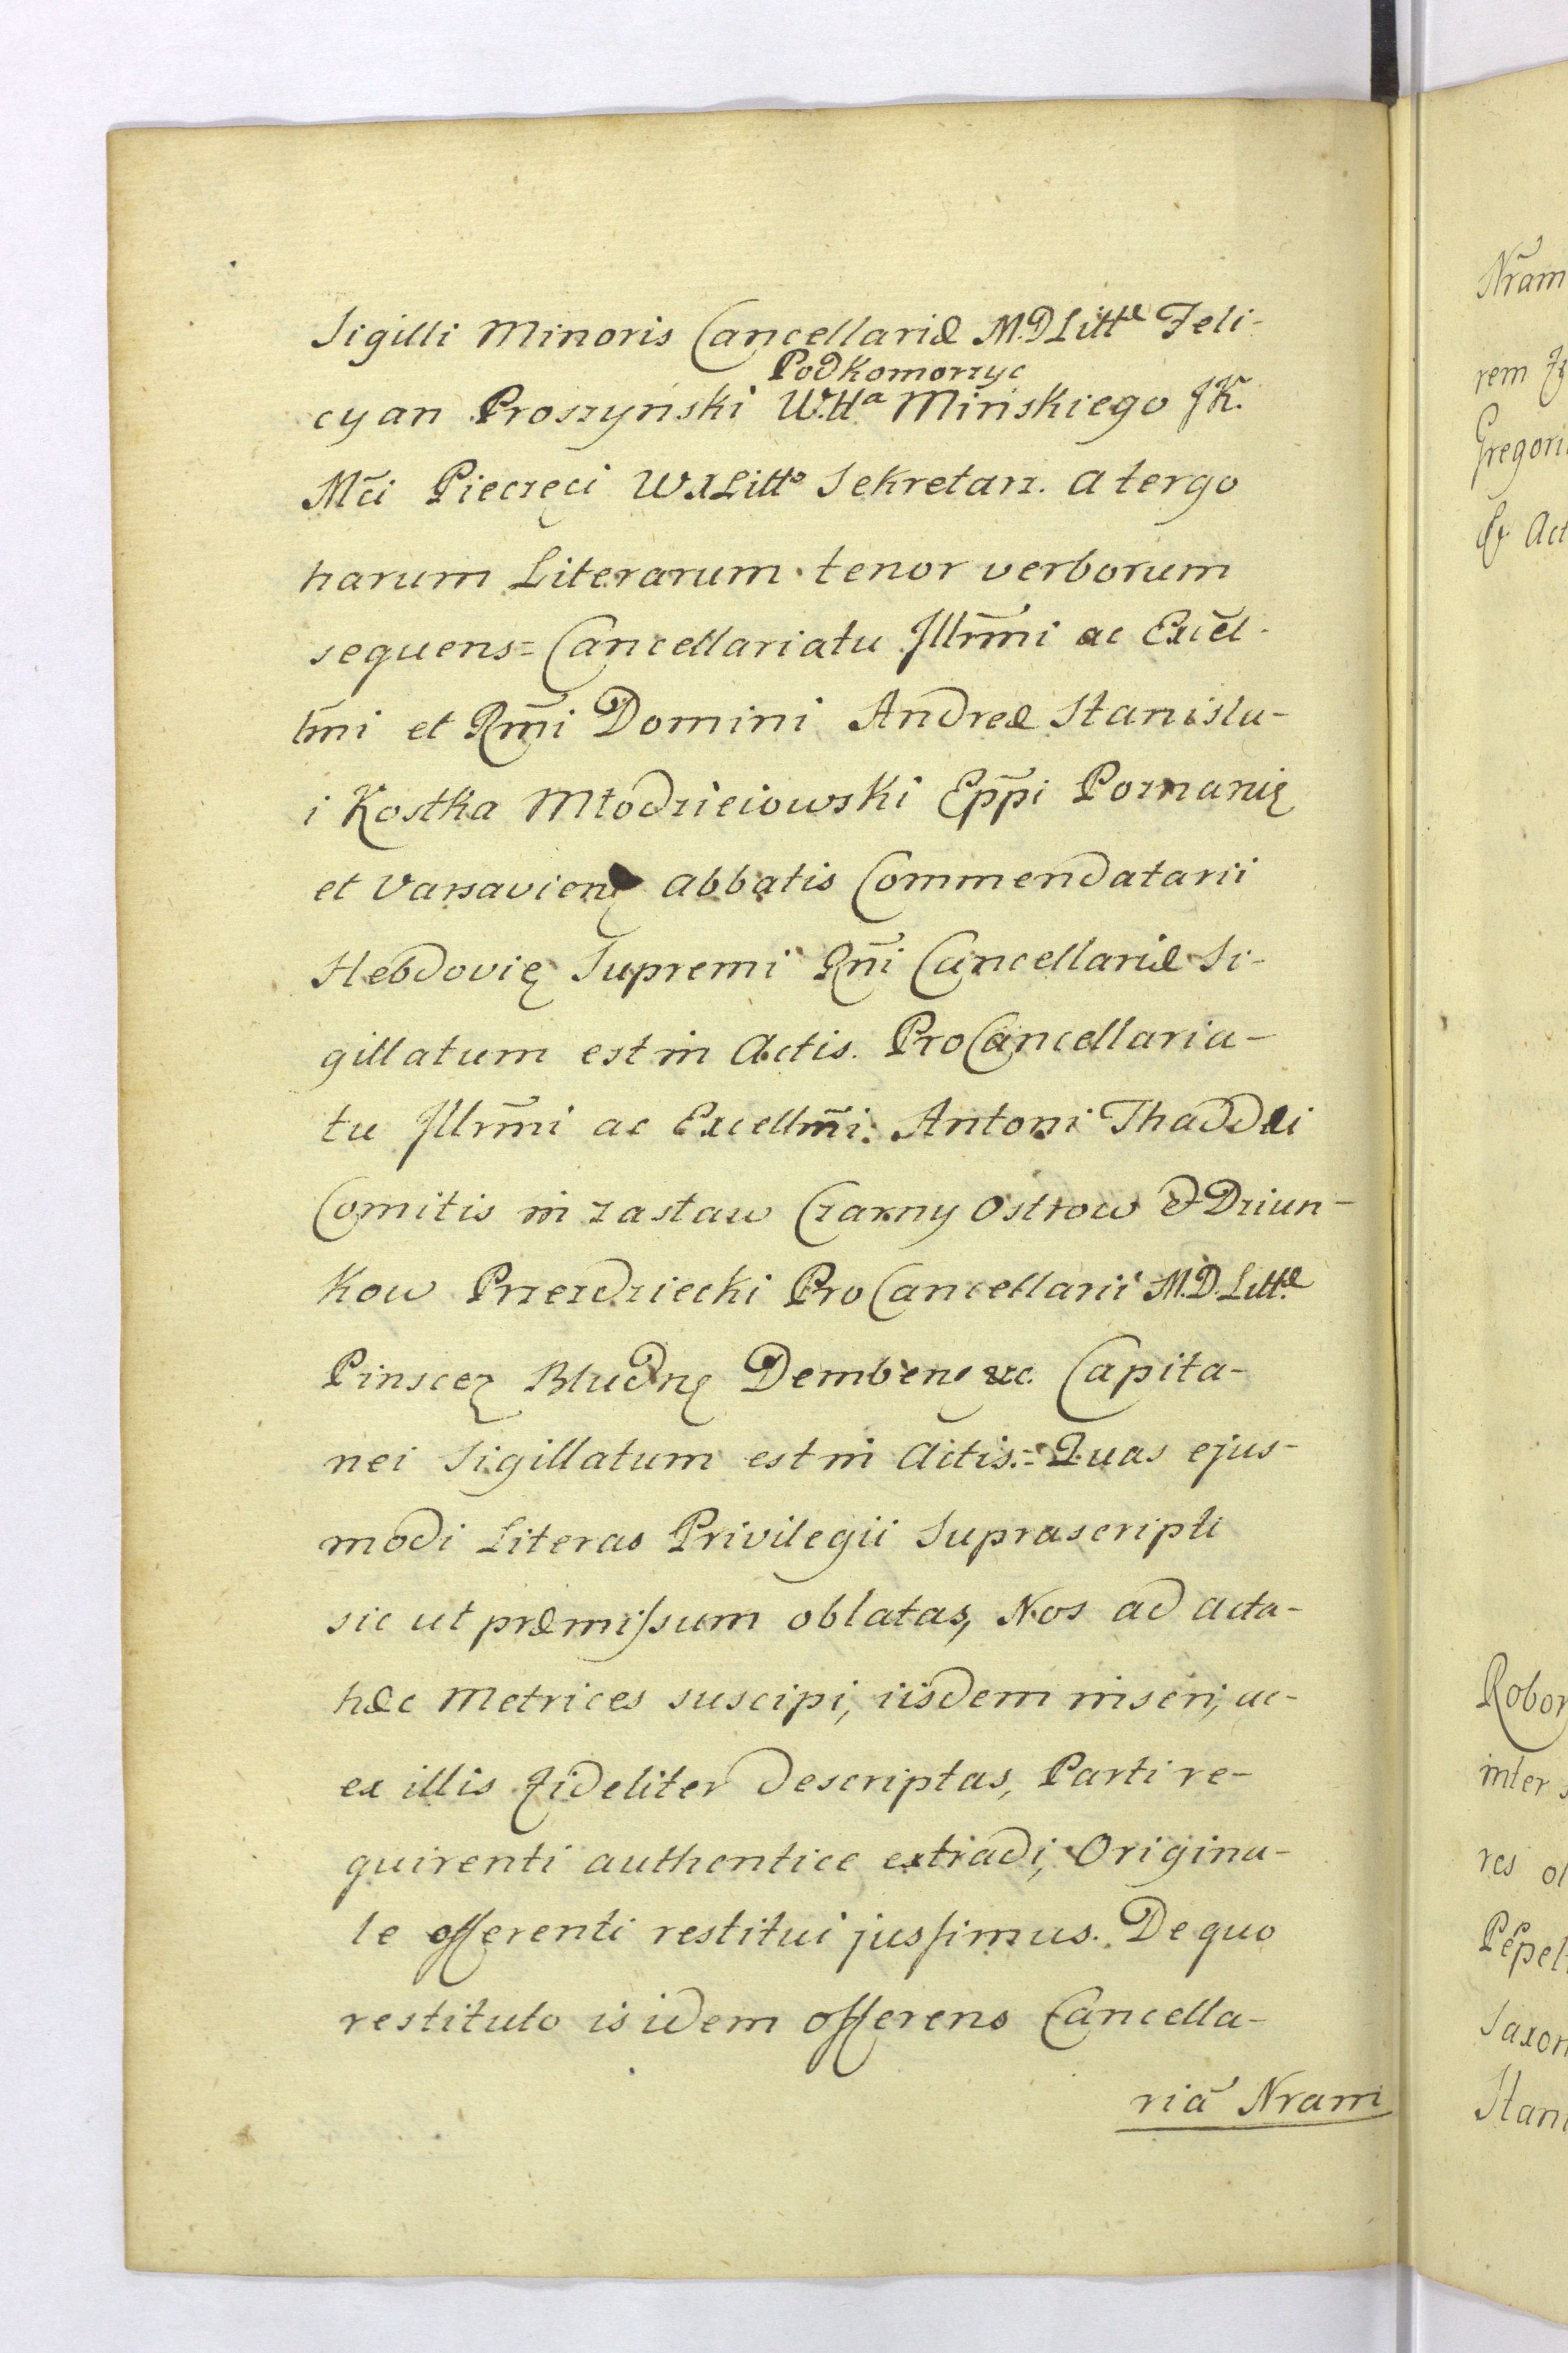 Sigilli Minoris Cancellariæ M.D Littæ Feli-
Podkomorzyc
cyan Proszyński W.ttа Mińskiego JK.
Mći Pieczęci WXLittо Sekretarz. a tergo
harum Literarum tenor verborum
sequens = Cancellariatu Illrm̃i ac Excel-
lm̃i et Rm̃i Domini Andreæ Stanisla-
i Kostka Młodzieiowski Epp̃i Poznanię
et Varsavienę abbatis Commendatarii
Hebdovię Supremi Rñi Cancellariæ Si-
gillatum est in Actis. ProCancellaria-
tu Illrm̃i ac Excellm̃i. Antoni Thaddæi
Comitis in Zastaw Czarny Ostrow & Dziun-
kow Przezdziecki ProCancellarii M.D. Littæ
Pinscę Bludnę Dembenę &c. Capita-
nei Sigillatum est in Actis. = Quas ejus-
modi Literas Privilegii Suprascripti
sic ut præmissum oblatas, Nos ad acta-
hæc Metrices suscipi, iisdem inseri, ac-
ex illis fideliter descriptas, Parti re-
quirenti authentice extradi, Origina-
le offerenti restitui jussimus. De quo
restituto is idem offerens Cancella-
riã Nram
Nr̃am
rem
Gregori
& Act
Robor
inter s
res ol
Pepel
Saxon
Stan